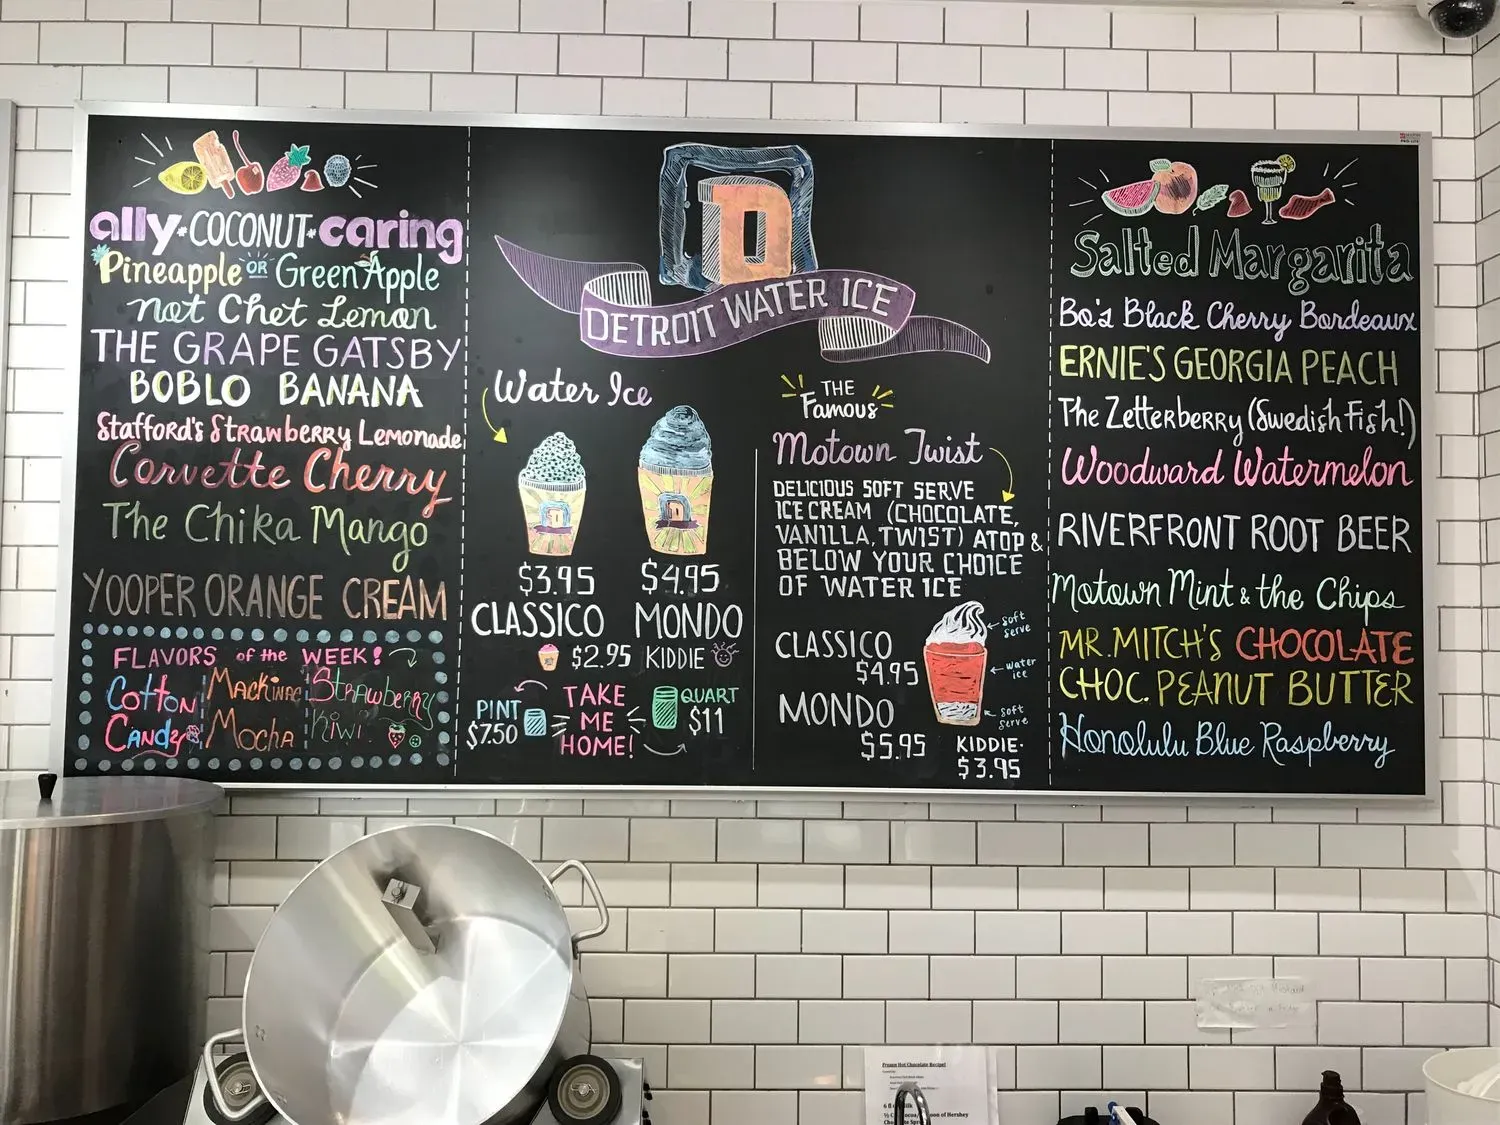 ally*COCONUT*caring
Pineapple OR Green Apple
not Chet Lemon
THE GRAPE GATSBY
BOBLO BANANA
Stafford's Strawberry Lemonade
Corvette Cherry
The Chika Mango
YOOPER ORANGE CREAM
FLAVORS of the WEEK!
Cotton Candy
Mackinac Mocha
Strawberry Kiwi
D
DETROIT WATER ICE
Water Ice
D
D
$3.95
CLASSICO
$4.95
MONDO
$2.95 KIDDIE
PINT
$7.50
TAKE
ME
HOME!
QUART
$11
THE
Famous
Motown Twist
DELICIOUS SOFT SERVE
ICE CREAM (CHOCOLATE,
VANILLA, TWIST) ATOP &
BELOW YOUR CHOICE
OF WATER ICE
CLASSICO
$4.95
MONDO
$5.95
soft
serve
water
ice
soft
serve
KIDDIE·
$3.95
Salted Margarita
Bo's Black Cherry Bordeaux
ERNIE'S GEORGIA PEACH
The Zetterberry (Swedish Fish!)
Woodward Watermelon
RIVERFRONT ROOT BEER
Motown Mint & the Chips
MR. MITCH'S CHOCOLATE
CHOC. PEANUT BUTTER
Honolulu Blue Raspberry
Frozen Hot Chocolate Recipe!
of Hershey